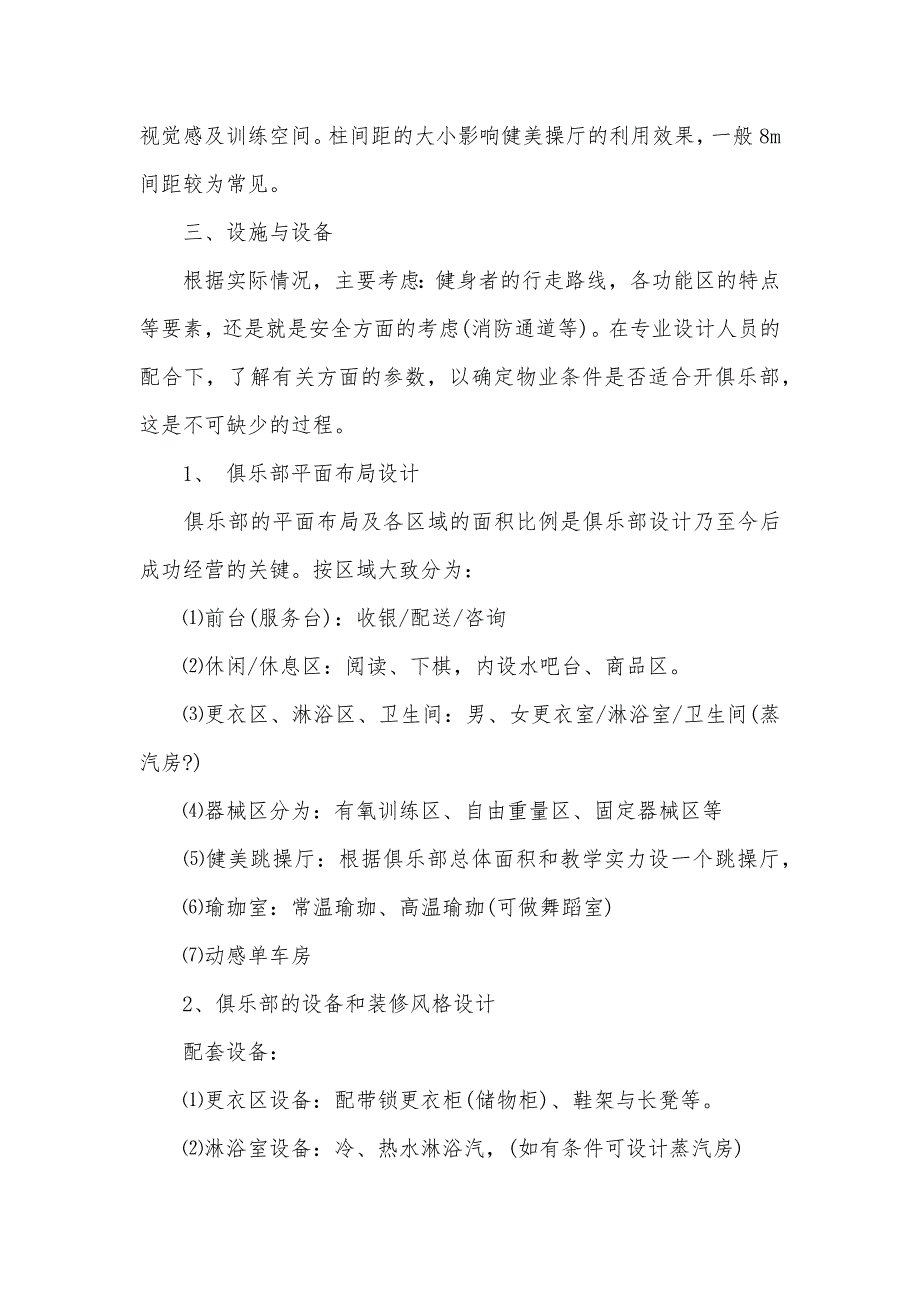 视觉感及训练空间。柱间距的大小影响健美操厅的利用效果，一般 8m
间距较为常见。
三、设施与设备
根据实际情况，主要考虑：健身者的行走路线，各功能区的特点
等要素，还是就是安全方面的考虑(消防通道等)。在专业设计人员的
配合下，了解有关方面的参数，以确定物业条件是否适合开俱乐部，
这是不可缺少的过程。
1、 俱乐部平面布局设计
俱乐部的平面布局及各区域的面积比例是俱乐部设计乃至今后
成功经营的关键。按区域大致分为：
⑴前台(服务台)：收银/配送/咨询
⑵休闲/休息区：阅读、下棋，内设水吧台、商品区。
⑶更衣区、淋浴区、卫生间：男、女更衣室/淋浴室/卫生间(蒸
汽房?)
⑷器械区分为：有氧训练区、自由重量区、固定器械区等
⑸健美跳操厅：根据俱乐部总体面积和教学实力设一个跳操厅，
⑹瑜珈室：常温瑜珈、高温瑜珈(可做舞蹈室)
⑺动感单车房
2、俱乐部的设备和装修风格设计
配套设备：
⑴更衣区设备：配带锁更衣柜(储物柜)、鞋架与长凳等。
⑵淋浴室设备：冷、热水淋浴汽，(如有条件可设计蒸汽房)